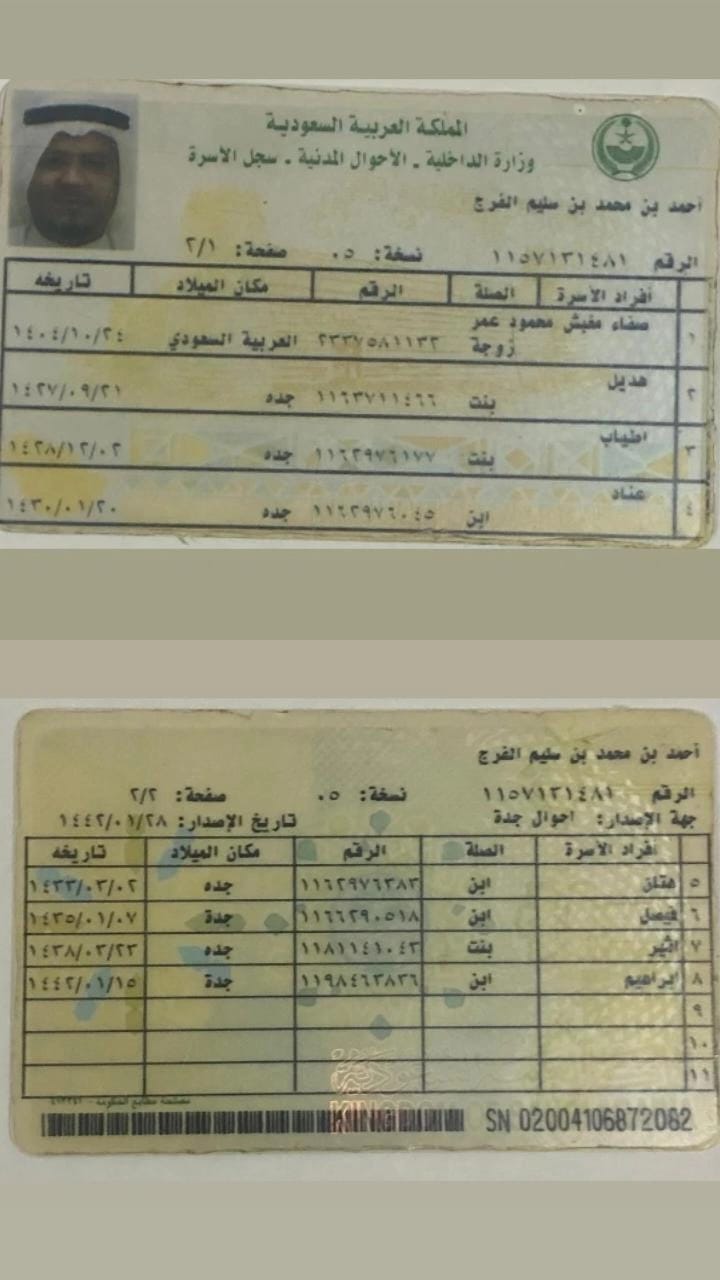 المملكة العربية السعودية
وزارة الداخلية ـ الأحوال المدنية ـ سجل الأسرة
أحمد بن محمد بن سليم الفرج
الرقم ١١٥٧١٣١٤٨١ نسخة: ٠٥ صفحة: ٢/١
أفراد الأسرة الصلة الرقم مكان الميلاد تاريخه
١ صفاء مغبش محمود عمر زوجة ٢٣٣٧٥٨١١٣٢ العربية السعودي ١٤٠٤/١٠/٢٤
٢ هديل بنت ١١٦٣٧١١٤٦٦ جده ١٤٢٧/٠٩/٢١
٣ اطياب بنت ١١٦٢٩٧٦١٧٧ جده ١٤٢٨/١٢/٠٢
٤ عناد ابن ١١٦٢٩٧٦٠٤٥ جده ١٤٣٠/٠١/٢٠
أحمد بن محمد بن سليم الفرج
الرقم ١١٥٧١٣١٤٨١ نسخة: ٠٥ صفحة: ٢/٢
جهة الإصدار: احوال جدة تاريخ الإصدار: ١٤٤٢/٠١/٢٨
أفراد الأسرة الصلة الرقم مكان الميلاد تاريخه
٥ هتان ابن ١١٦٢٩٧٦٣٨٣ جده ١٤٣٣/٠٣/٠٢
٦ فيصل ابن ١١٦٦٢٩٠٥١٨ جدة ١٤٣٥/٠١/٠٧
٧ بنت ١١٨١١٤١٠٤٣ جده ١٤٣٨/٠٣/٢٣
٨ ابراهيم ابن ١١٩٨٤٦٣٨٣٦ جدة ١٤٤٢/٠١/١٥
٩
١٠
١١
KINGDO
SN 02004106872082